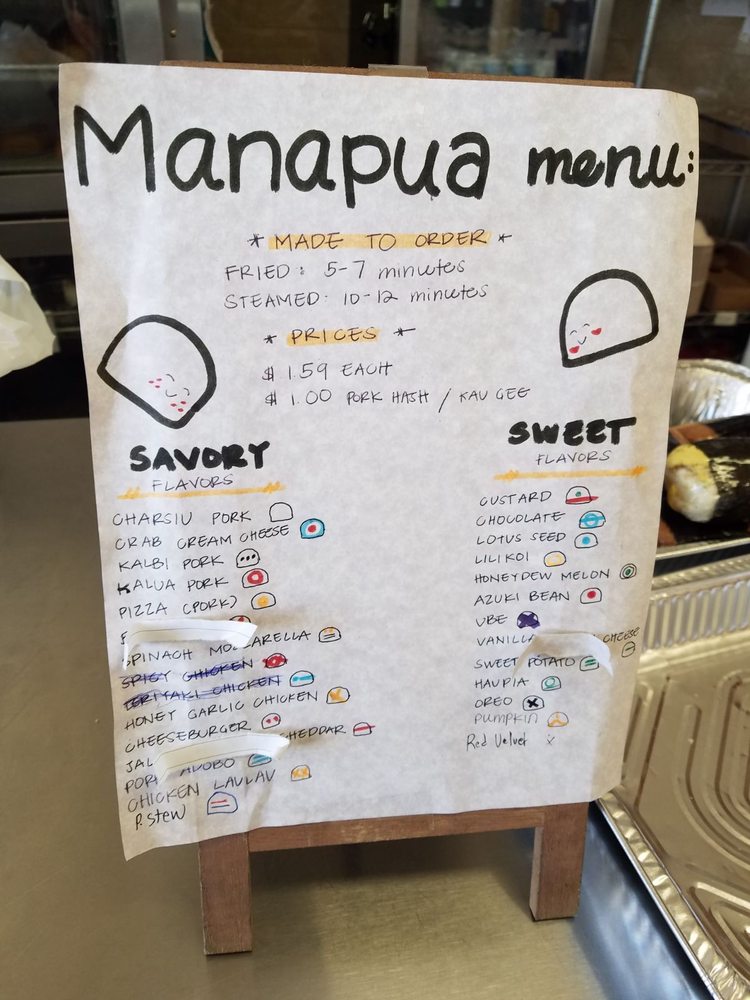 Manapua menu:
* MADE TO ORDER *
FRIED: 5-7 minutes
STEAMED: 10-12 minutes
* PRICES *
$ 1.59 EACH
$ 1.00 PORK HASH / KAU GEE
SAVORY
FLAVORS
CHARSIU PORK
CRAB CREAM CHEESE
KALBI PORK
KALUA PORK
PIZZA (PORK)
SPINACH MOZZARELLA
SPICY CHICKEN
TERIYAKI CHICKEN
HONEY GARLIC CHICKEN
CHEESEBURGER
JAL CHEDDAR
PORK ADOBO
CHICKEN LAULAU
P. Stew
SWEET
FLAVORS
CUSTARD
CHOCOLATE
LOTUS SEED
LILIKOI
HONEYDEW MELON
AZUKI BEAN
UBE
VANILLA CHEESE
SWEET POTATO
HAUPIA
OREO
PUMPKIN
Red Velvet